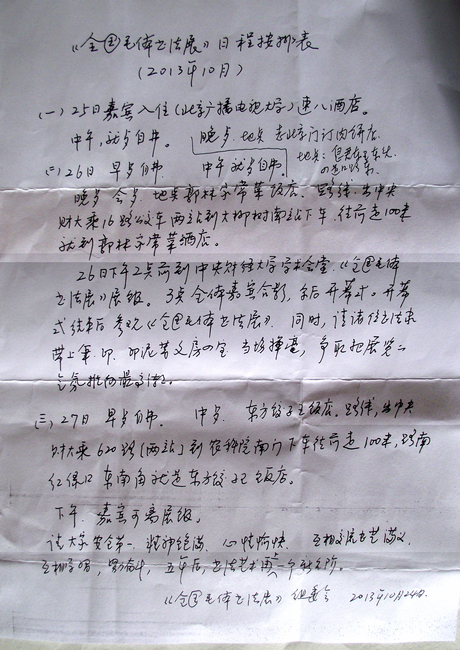 《全国毛体书法展》日程按排表
(2013年10月)
(一)25日嘉宾入住(北京广播电视大学)速八酒店。
中午,就歺自弗。 晚歺 地点 老北京门订肉饼店.
(二)26日 早歺自弗. 中午就歺自弗. 地点:
的路口路东.
晚歺会歺.地点郭林家常菜饭店. 路线:出中央
财大乘16路公交车两站到大柳树南站下车.往前走100米
就到郭林家常菜酒店。
26日下午2点前到中央财经大学学术会堂.《全国毛体
书法展》展馆。3点全体嘉宾合影,尔后开幕式。开幕
式结束后参观《全国毛体书法展》. 同时,请诸位书法家
带上笔、印、印泥等文房四宝 当场挥毫,争取把展览
气氛推向最高潮。
(三)27日 早歺自弗. 中歺. 东方饺子王饭店.路线:出中央
财大乘620路(两站)到农科院南门下车往前走100米,路南
红绿口东南角就是东方饺子王饭店。
下午.嘉宾可离展馆。
请大家安全第一.精神饱满.心情愉快. 互相交流书艺
互相学习, 五年后.书法艺术再上一个新台阶。
《全国毛体书法展》组委会 2013年10月24日.